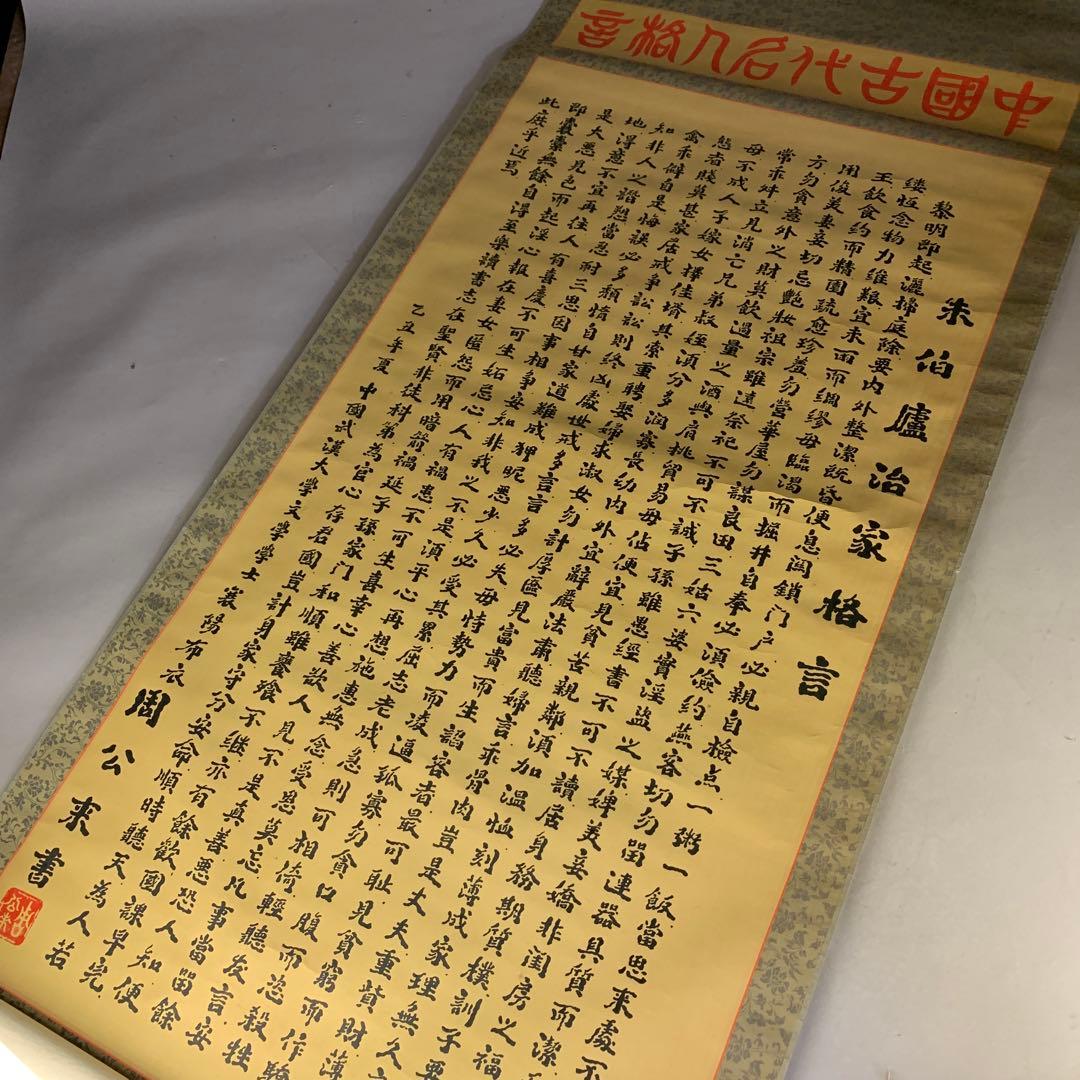 中國古代名人格言
朱伯廬治家格言
黎明即起灑掃庭除要內外整潔既昏便息関鎖门户必親自檢点一粥一飯當思来處不
缕恆念物力維艱宜未雨而綢繆毋臨渴而掘井自奉必須儉約燕客切勿留連器具質而潔
玉飲食約而精園蔬愈珍羞勿營華屋勿謀良田三姑六婆實淫盜之媒婢美妾嬌非闺房之福
用俊美妻妾切忌艷妝祖宗雖遠祭祀不可不誠子孫雖愚經書不可不讀居身務期質樸訓子要
方勿貪意外之財莫飲過量之酒與肩挑貿易毋佔便宜見貧苦親鄰須加溫恤刻薄成家理無久
常乖舛立見消亡兄弟叔姪須分多润寡長幼內外宜辭嚴法肅聽婦言乖骨肉豈是丈夫重貲財薄
母不成人子嫁女擇佳壻毋索重聘娶婦求淑女勿計厚奩見富貴而生諂容者最可耻見貧窮而作驕
態者賤莫甚家居戒爭訟訟則終凶處世戒多言言多必失毋恃勢力而凌逼孤寡勿貪口腹而恣殺牲
禽乖僻自是悔误必多頹惰自甘家道難成狎昵恶少久必受其累屈志老成急則可相倚輕聽发言安
知非人之譖愬當忍耐三思因事相爭安知非我之不是須平心再想施惠無念受恩莫忘凡事當留餘
地得意不宜再往人有喜慶不可生妬忌心人有禍患不可生喜幸心善欲人見不是真善惡恐人知便
是大惡見色而起淫心報在妻女匿怨而用暗箭禍延子孫家门和順雖饔飧不继亦有餘歡國課早完
即囊橐無餘自得至樂讀書志在聖賢非徒科第為官心存君國豈計身家守分安命順時聽天為人若
此庶乎近焉
乙丑年夏 中國武漢大學文學學士襄陽布衣周公来書
周公来